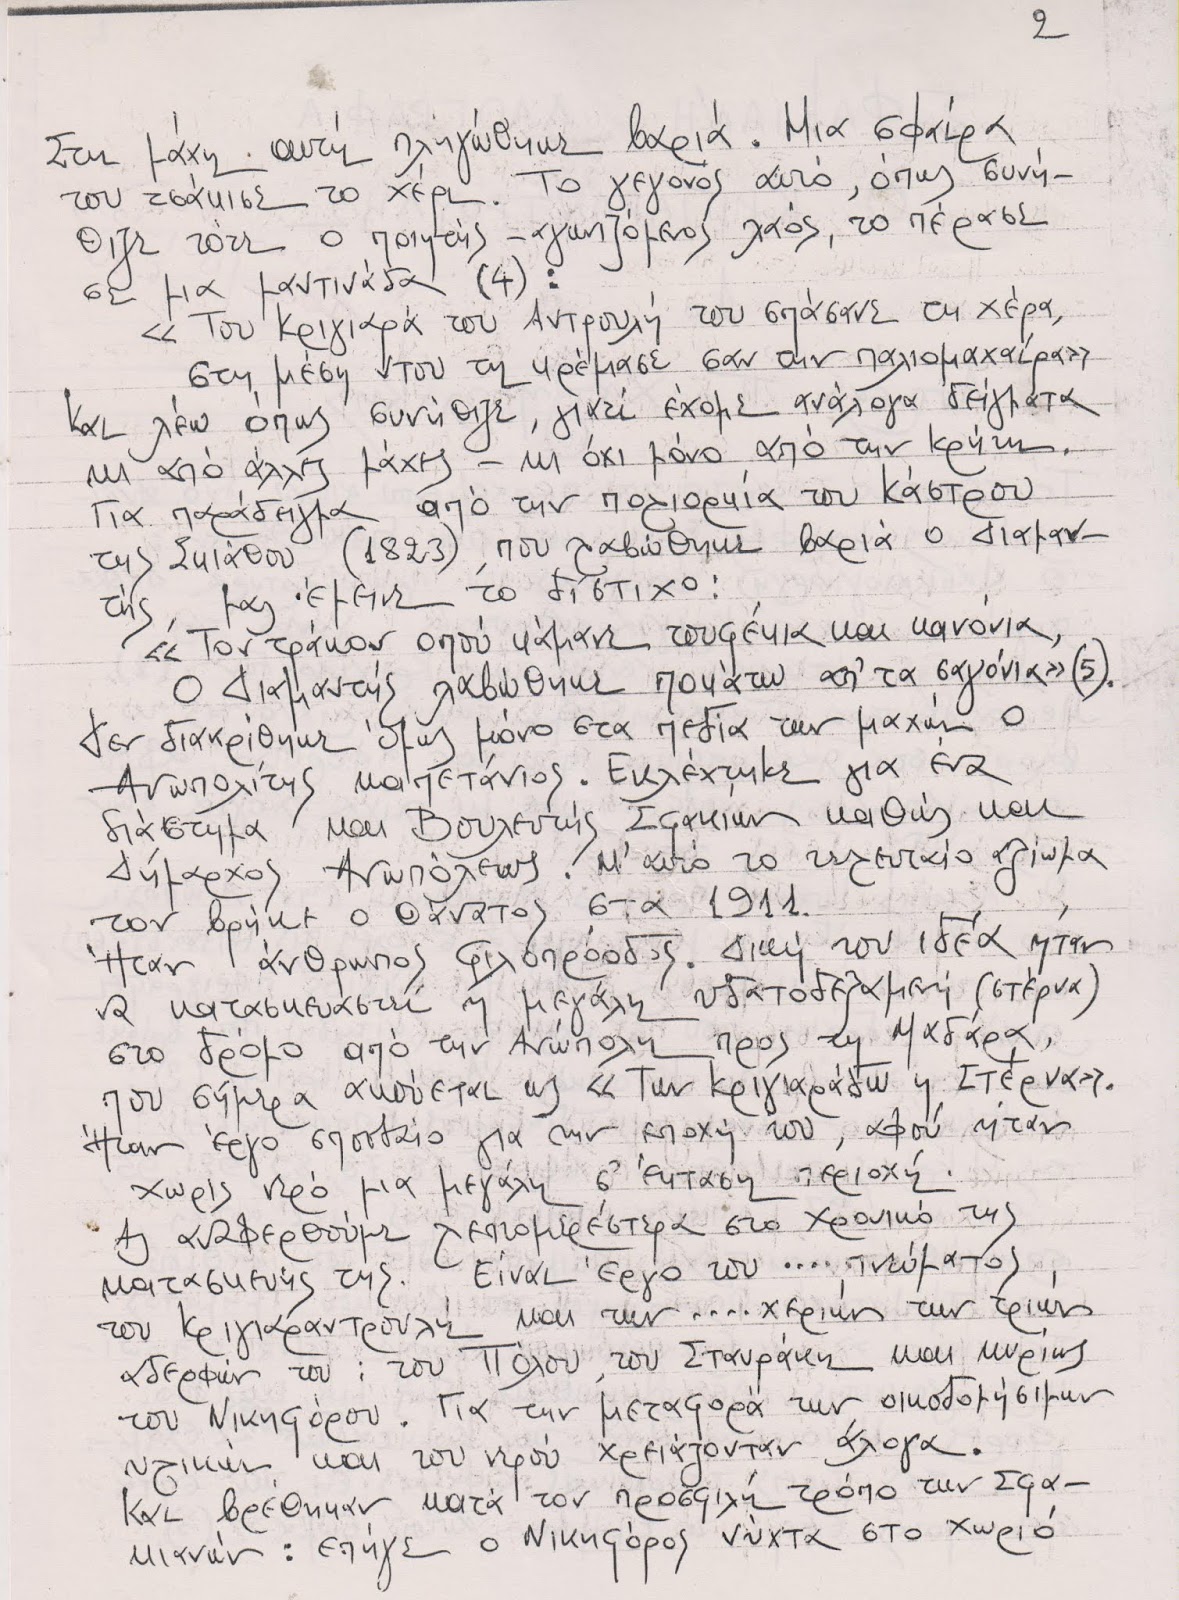 2
Στη μάχη αυτή πληγώθηκε βαριά. Μια σφαίρα
του τσάκισε το χέρι. Το γεγονός αυτό, όπως συνή-
θιζε τότε ο ποιητής - αγωνιζόμενος λαός, το πέρασε
σε μια μαντινάδα (4):
« Του Κριγιαρά του Αντρουλή του σπάσανε τη χέρα,
στη μέση ντου τη κρέμασε σαν την παλιομαχαίρα»
Και λέω όπως συνήθιζε, γιατί έχομε ανάλογα δείγματα
κι από άλλες μάχες - κι όχι μόνο από την Κρήτη.
Για παράδειγμα από την πολιορκία του Κάστρου
της Σκιάθου (1823), που λαβώθηκε βαριά ο Διαμαν-
τής, μας έμεινε το δίστιχο:
« Τον τράκον οπού κάμανε τουφέκια και κανόνια,
Ο Διαμαντής λαβώθηκε ποκάτω απ' τα σαγόνια» (5).
Δεν διακρίθηκε όμως μόνο στα πεδία των μαχών ο
Ανωπολίτης καπετάνιος. Εκλέχτηκε για ένα
διάστημα και Βουλευτής Σφακίων καθώς και
Δήμαρχος Ανωπόλεως. Μ' αυτό το τελευταίο αξίωμα
τον βρήκε ο θάνατος στα 1911.
Ήταν άνθρωπος φιλοπρόοδος. Δική του ιδέα ήταν
να κατασκευαστεί η μεγάλη υδατοδεξαμενή (στέρνα)
στο δρόμο από την Ανώπολη προς τη Μαδάρα,
που σήμερα ακούεται ως « Των Κριγιαράδω η Στέρνα».
Ήταν έργο σπουδαίο για την εποχή του, αφού ήταν
χωρίς νερό μια μεγάλη σ' έκταση περιοχή.
Ας αναφερθούμε λεπτομερέστερα στο χρονικό της
κατασκευής της. Είναι έργο του .... πνεύματος,
του Κριγιαραντρουλή και των .... χεριών των τριών
αδερφών του: του Πόλου, του Σταυράκη και κυρίως
του Νικηφόρου. Για την μεταφορά των οικοδομήσιμων
υλικών και του νερού χρειάζονταν άλογα.
Και βρέθηκαν κατά τον προσφιλή τρόπο των Σφα-
κιανών: επήγε ο Νικηφόρος νύχτα στο χωριό